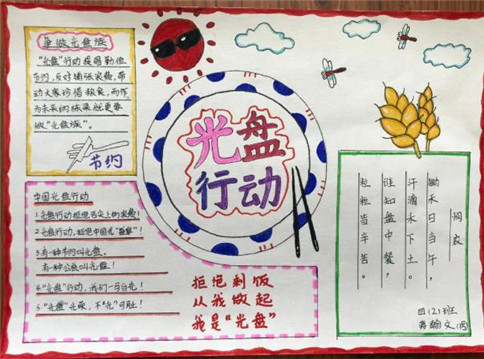 争做光盘族
"光盘"行动提倡勤俭
节约，反对铺张浪费，带
动大家珍惜粮食，而作
为未来的栋梁就更要
做"光盘族"。
节约
光盘
行动
中国光盘行动
1.光盘行动拒绝舌尖上的浪费！
2.光盘行动，拒绝中国式"剩宴"！
3.有一种节约叫光盘，
有一种公益叫光盘！
4."光盘"行动，我们一马当先！
5."光盘"光荣，不"光"可耻！
拒绝剩饭
从我做起
我是"光盘"
悯农
锄禾日当午，
汗滴禾下土。
谁知盘中餐，
粒粒皆辛苦。
四(2)班